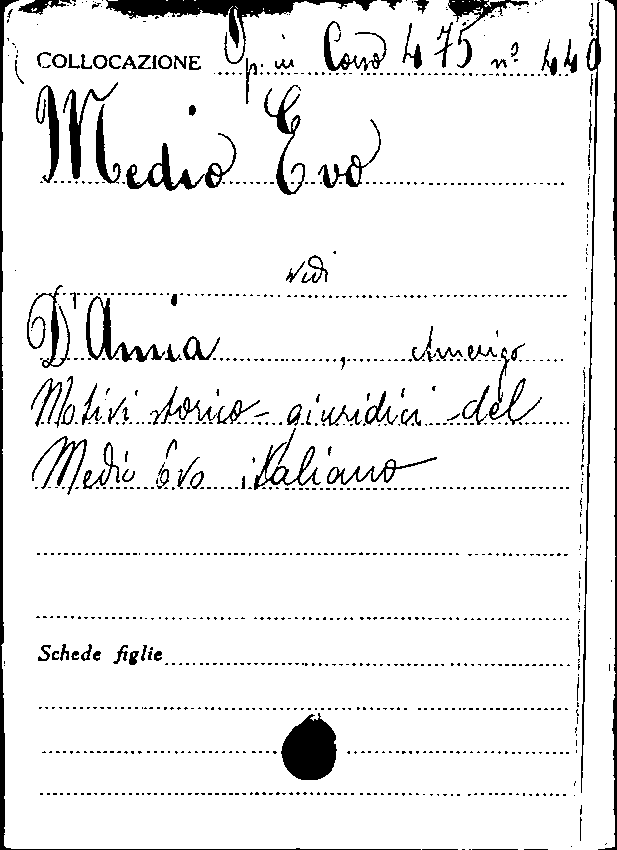 COLLOCAZIONE Op. in Corso 475 nº 440
Medio Evo
vedi
D'Amia, Amerigo
Motivi storico-giuridici del
Medio Evo italiano
Schede figlie